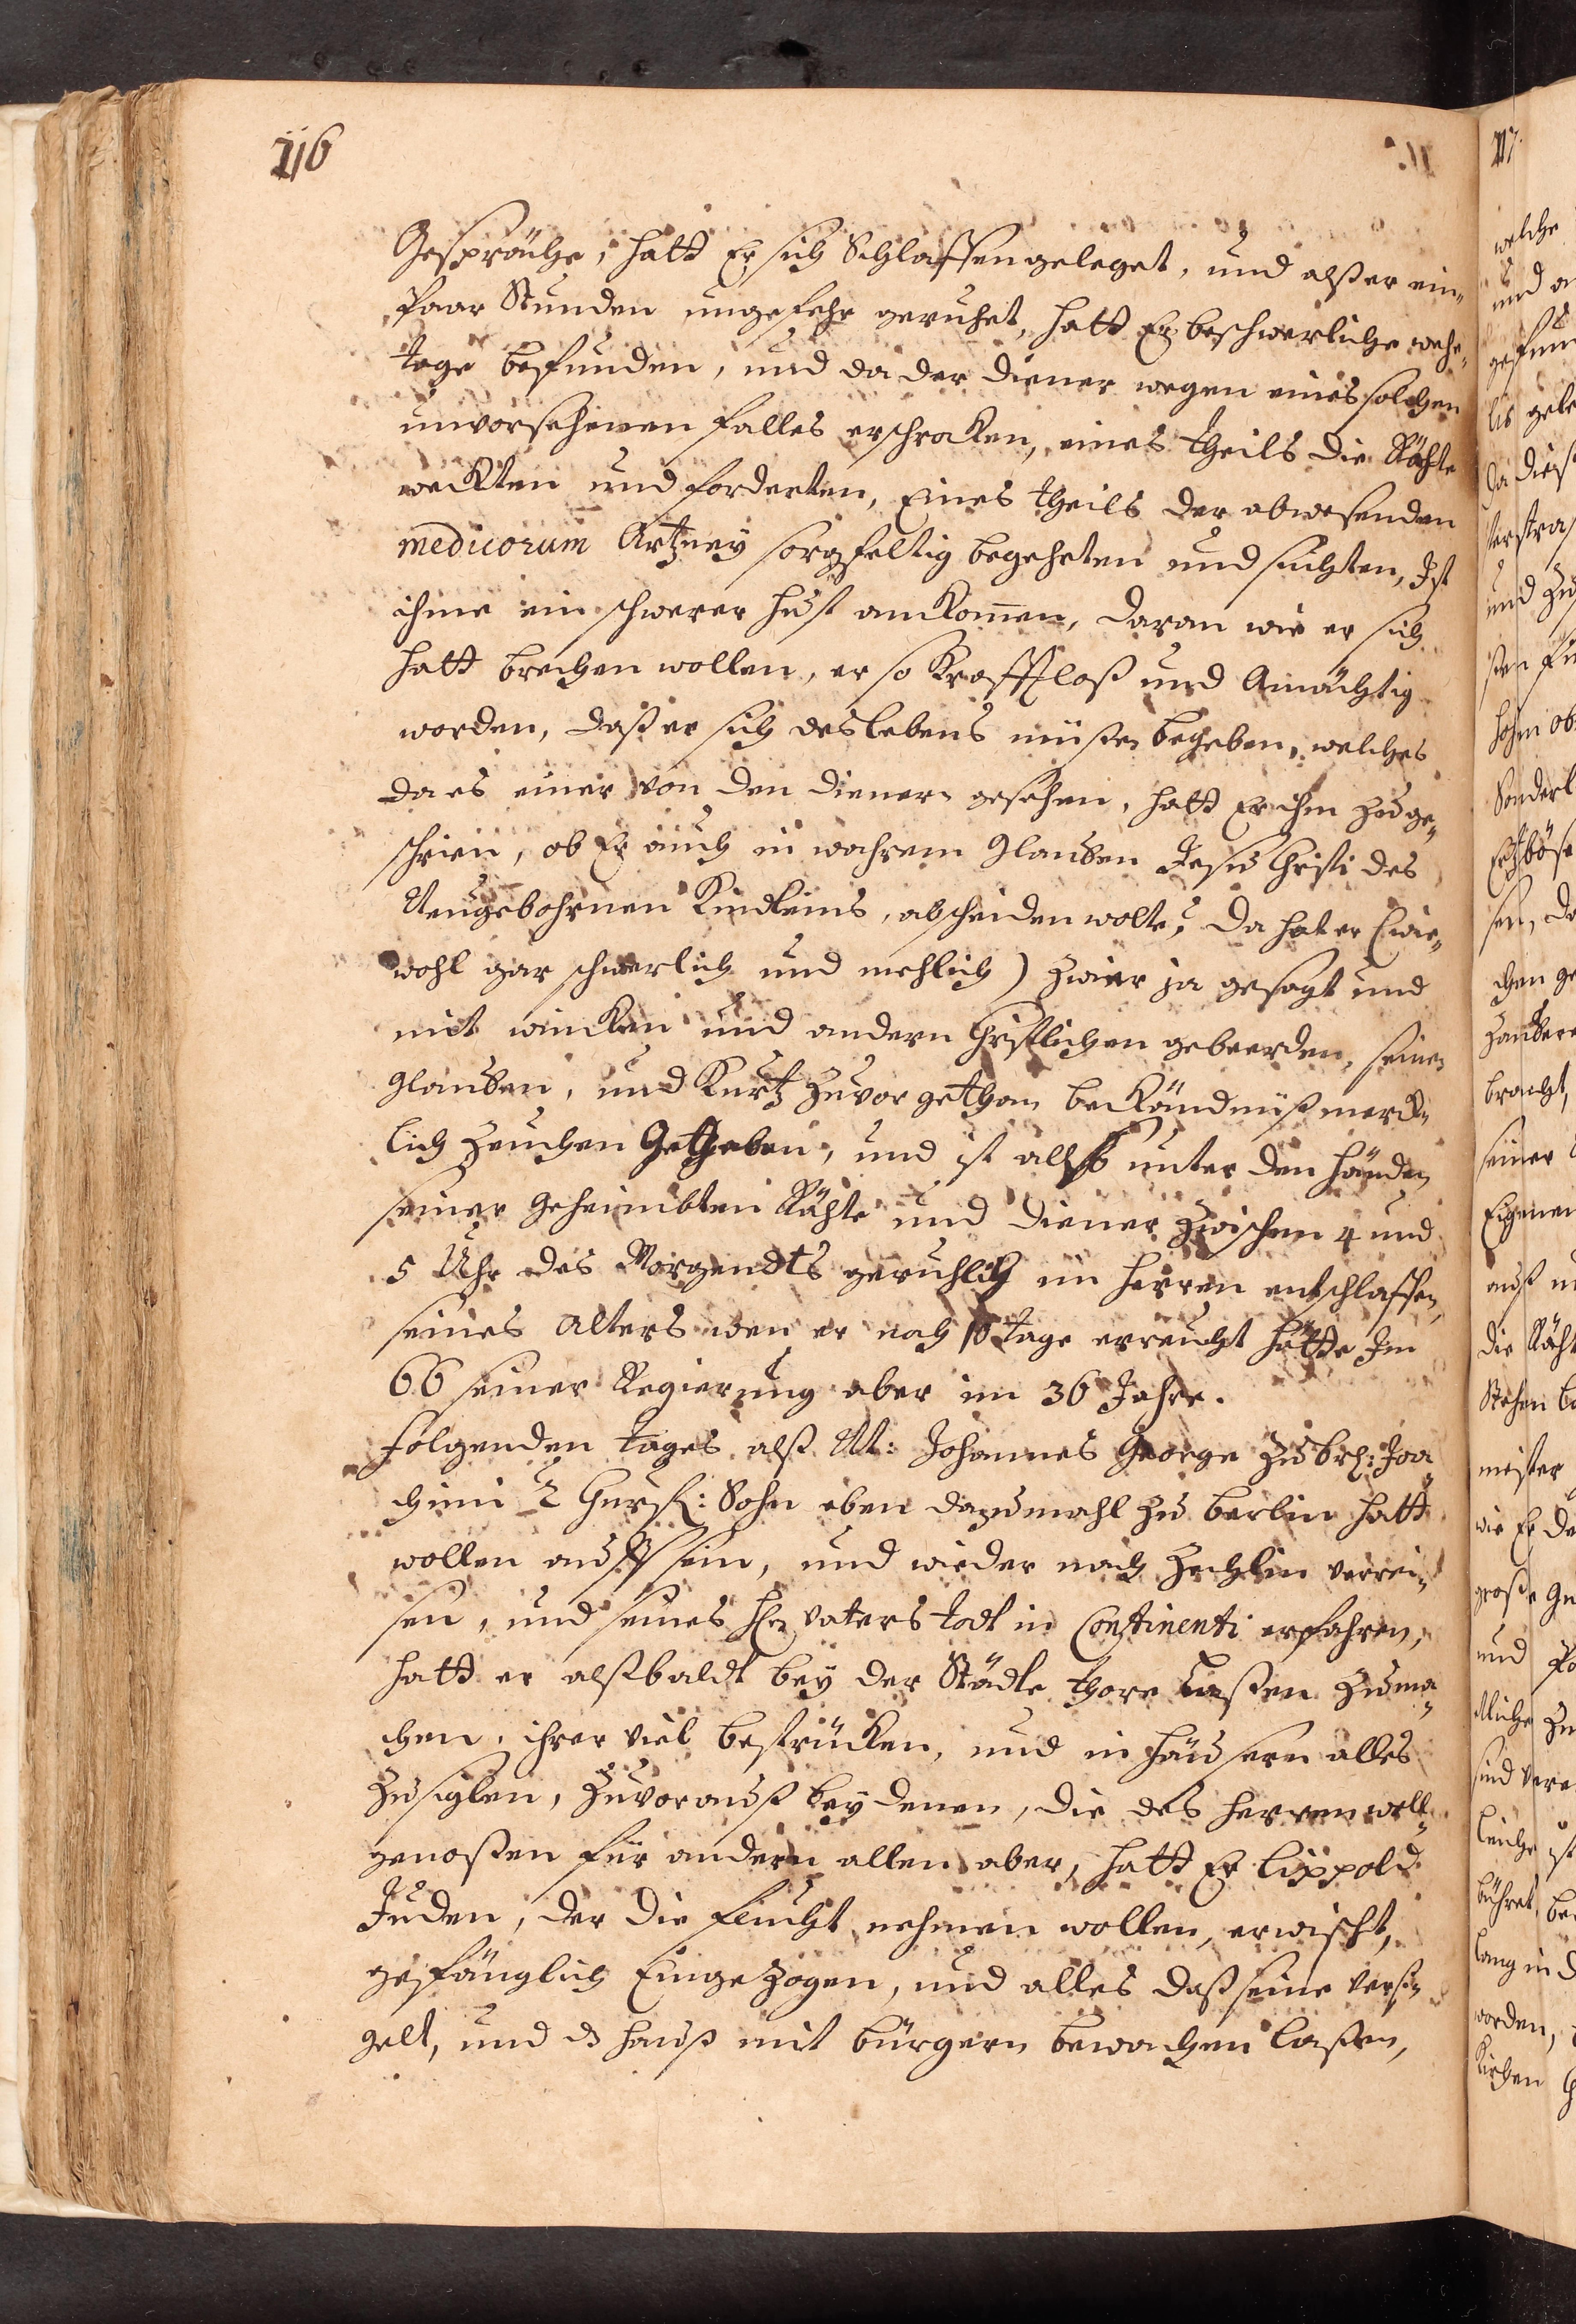 116
Gespräche, hatt Er sich Schlaffen geleget, und alß er ein
Paar Stunden ungefehr geruhet, hatt Er beschwerliche wehe-
tage befunden, und da der diener wegen eines solchen
unvorsehenen falles erschrocken, eines theils die Rähte
weckten und forderten, Eines theils der abwesenden
medicorum Artzney sorgfeltig begehrten und suchten, Ist
ihme ein schwerer hust ankom̄en, daran wie er sich
hatt brechen wollen, er so Krafftloß und Amächtig
worden, daß er sich des lebens müßen begeben, welches
da es einer von den dienern gesehen, hatt Er ihm zu ge-
schrien, ob Er auch in wahrem glauben Jesu Christi des
Neugebohrnen Kindleins, abscheiden wolte? Da hat er (wie-
wohl gar schwerlich und mehlich) zwier ja gesagt und
mit wincken und andern Christlichen gebeerden, seinen
glauben, und Kurtz zuvor gethan bekändnüß merck-
lich zeuchen Getgeben, und ist allso unter den händen
seiner geheimbten Rähte und diener zwischen 4 und
5 Uhr des Morgendts geruhlich im herren entschlaffen,
seines alters wen er noch 10 tage erreicht hätte Im
66 seiner Regierung aber im 36 Jahre.
folgenden tages alß M: Johannes George zu br: Joa
chimi 2 Churf: Sohn eben dazumahl zu berlin hatt
wollen auff sein, und wieder nach Zechlin verrei-
sen, und seines hln vaters todt in Continenti erfahren,
hatt er alßbaldt bey der Städte thore laßen zuma-
chen, ihrer viel bestricken, und in häusern alles
zusiglen, zuvorauß bey denen, die des herren woll
genoßen für andern allen aber, hatt Er Lippold
Juden, der die flucht nehmen wollen, erwischt,
gefänglich Eingezogen, und alles daß seine versi-
gelt, und d hauß mit bürgern bewachen laßen,